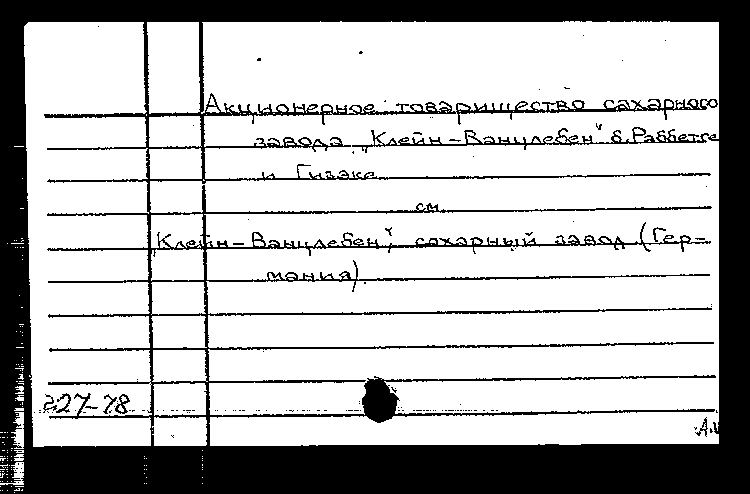 Акционерное товарищество сахарного
завода „Клейн-Ванцлебен" б. Раббетге
и Гизеке
см.
„Клейн-Ванцлебен", сахарный завод (Гер-
мания).
227-78